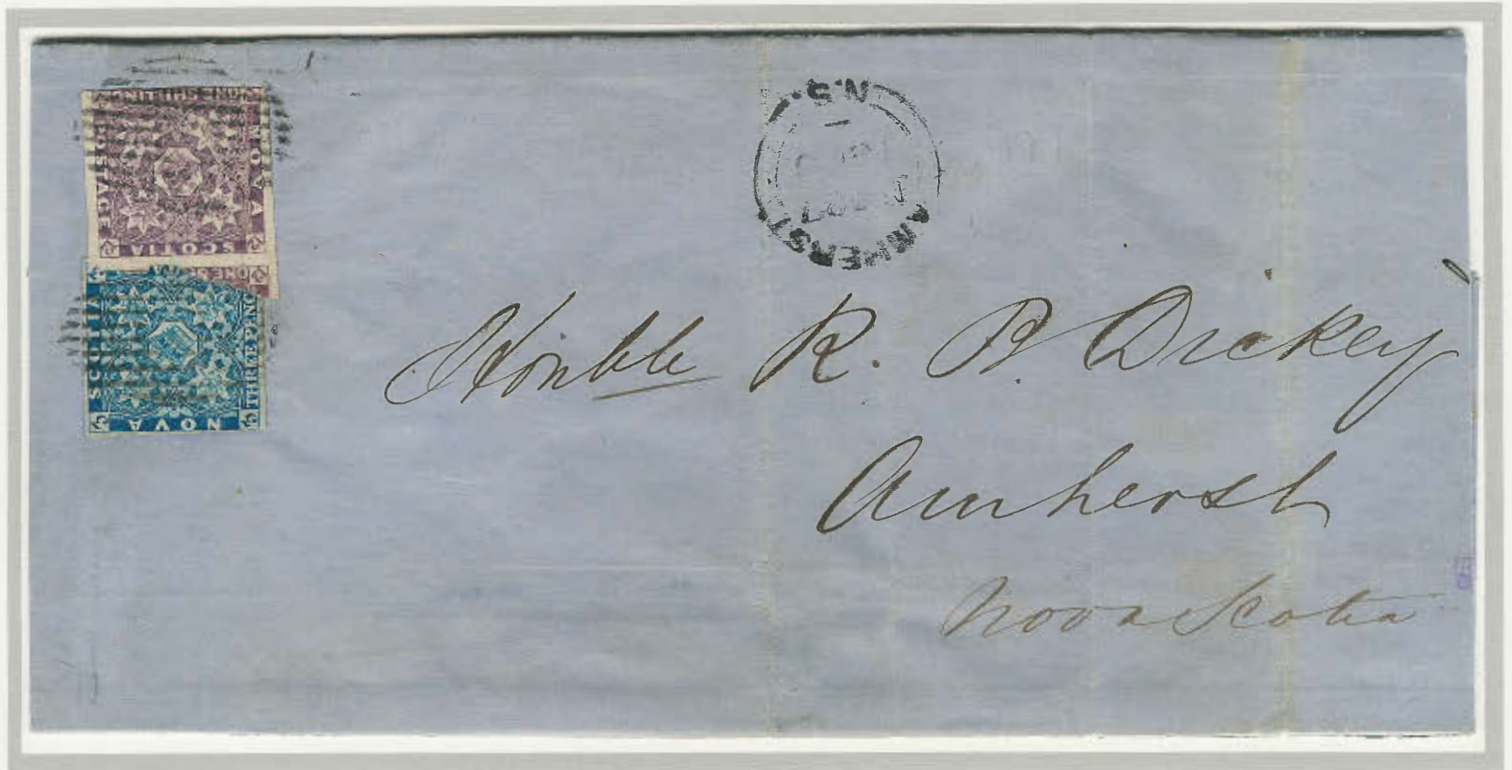 ONE SHILLING
NOVA
SCOTIA
POSTAGE
ONE S
SCOTIA
THREE PENC
NOVA
AMHERST
N.S.
Honble R. B. Dickey
Amherst
Nova Scotia